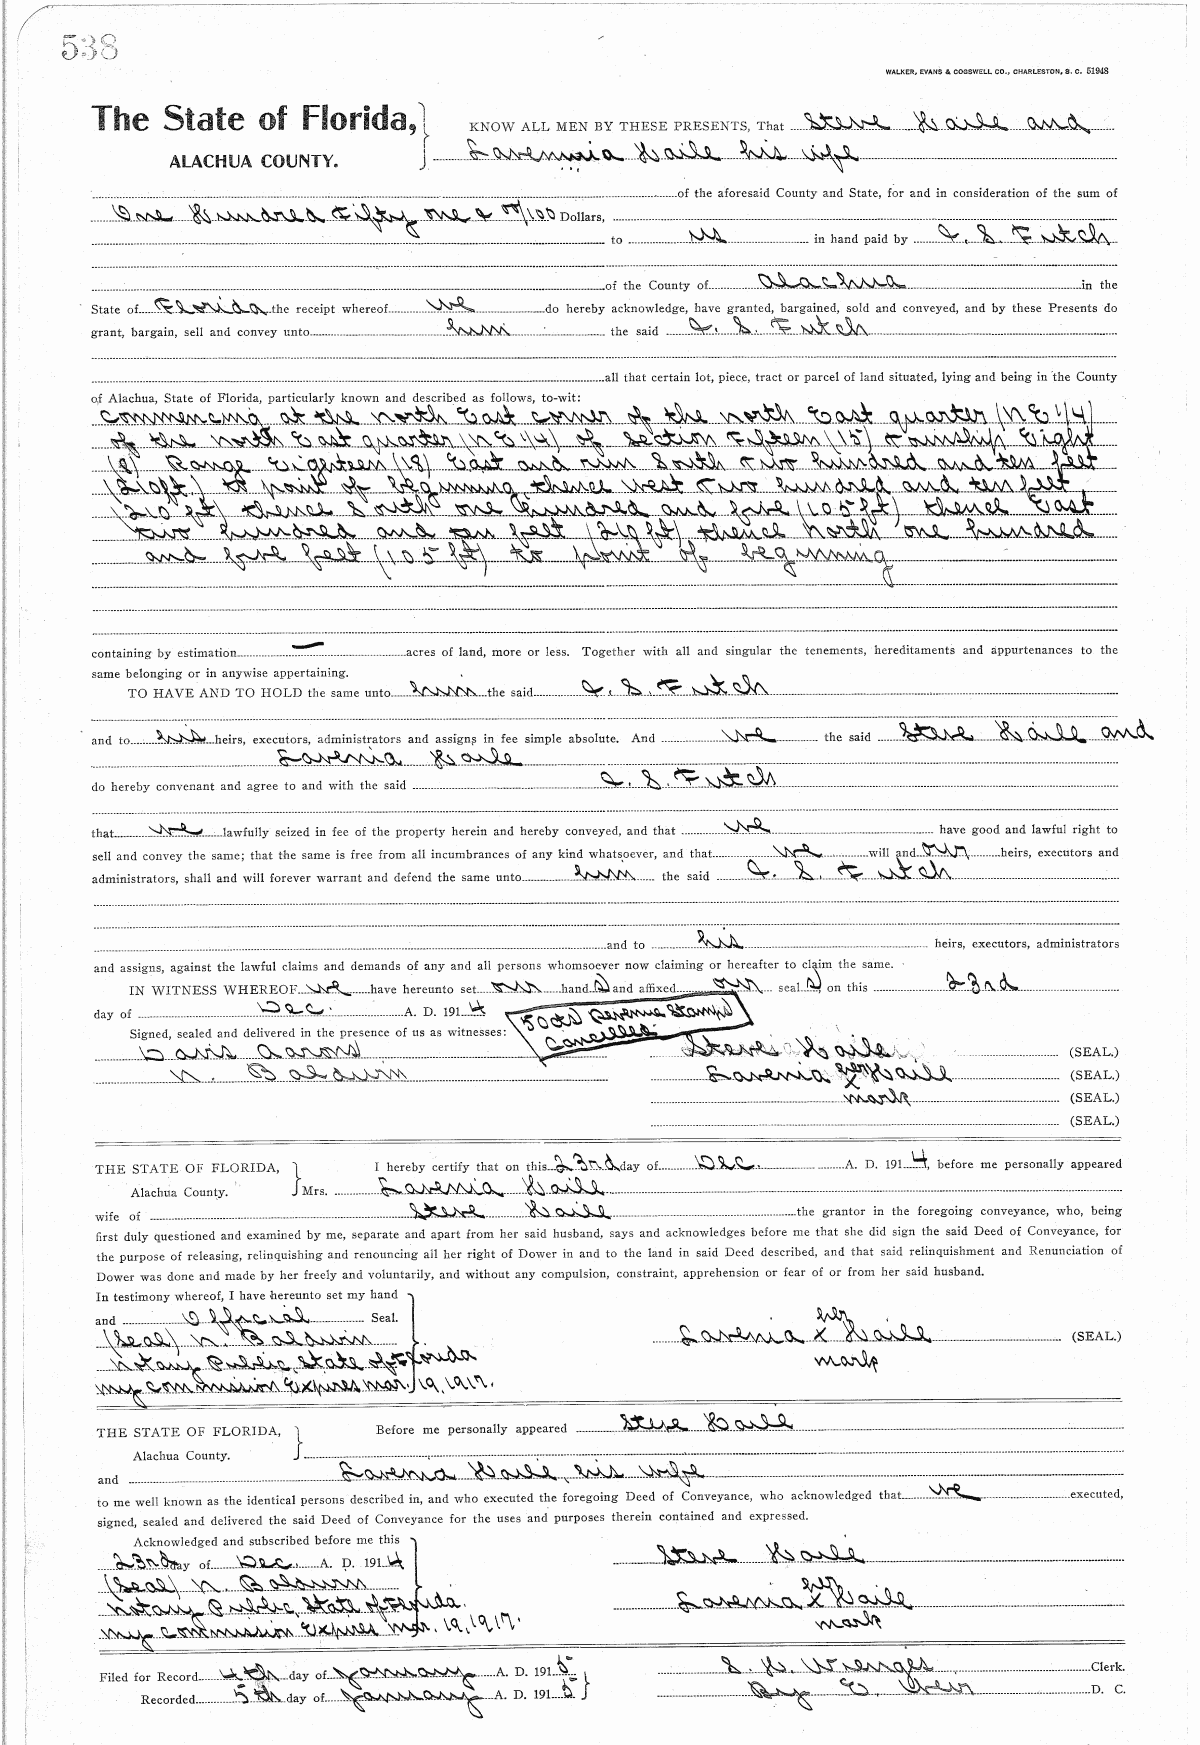 538
WALKER, EVANS & COGSWELL CO., CHARLESTON, S. C. 51948
The State of Florida, KNOW ALL MEN BY THESE PRESENTS, That Steve Haile and
ALACHUA COUNTY. Lavennia Haile his wife
of the aforesaid County and State, for and in consideration of the sum of
One Hundred Fifty one & 00/100 Dollars,
to us in hand paid by J. S. Futch
of the County of Alachua in the
State of Florida the receipt whereof we do hereby acknowledge, have granted, bargained, sold and conveyed, and by these Presents do
grant, bargain, sell and convey unto him the said J. S. Futch
all that certain lot, piece, tract or parcel of land situated, lying and being in the County
of Alachua, State of Florida, particularly known and described as follows, to-wit:
Commencing at the north East corner of the north East quarter (NE 1/4)
of the north East quarter (NE 1/4) of Section Fifteen (15) Township Eight
(8) Range Eighteen (18) East and run South Two hundred and ten feet
(210ft) to point of beginning thence west Two hundred and ten feet
(210 ft) thence South one hundred and five (105 ft) thence East
two hundred and ten feet (210 ft) thence north one hundred
and five feet (105 ft) to point of beginning
containing by estimation — acres of land, more or less. Together with all and singular the tenements, hereditaments and appurtenances to the
same belonging or in anywise appertaining.
TO HAVE AND TO HOLD the same unto him the said J. S. Futch
and to his heirs, executors, administrators and assigns in fee simple absolute. And we the said Steve Haile and
Lavenia Haile
do hereby convenant and agree to and with the said J. S. Futch
that we lawfully seized in fee of the property herein and hereby conveyed, and that we have good and lawful right to
sell and convey the same; that the same is free from all incumbrances of any kind whatsoever, and that we will and our heirs, executors and
administrators, shall and will forever warrant and defend the same unto him the said J. S. Futch
and to his heirs, executors, administrators
and assigns, against the lawful claims and demands of any and all persons whomsoever now claiming or hereafter to claim the same.
IN WITNESS WHEREOF we have hereunto set our hand s and affixed our seal s on this 23rd
day of Dec. A. D. 1914
50cts Revenue Stamps
Cancelled
Signed, sealed and delivered in the presence of us as witnesses:
Davis Arons Steve Haile (SEAL.)
N. Baldwin Lavenia her x Haile (SEAL.)
mark (SEAL.)
(SEAL.)
THE STATE OF FLORIDA, I hereby certify that on this 23rd day of Dec. A. D. 1914, before me personally appeared
Alachua County. Mrs. Lavenia Haile
wife of Steve Haile the grantor in the foregoing conveyance, who, being
first duly questioned and examined by me, separate and apart from her said husband, says and acknowledges before me that she did sign the said Deed of Conveyance, for
the purpose of releasing, relinquishing and renouncing all her right of Dower in and to the land in said Deed described, and that said relinquishment and Renunciation of
Dower was done and made by her freely and voluntarily, and without any compulsion, constraint, apprehension or fear of or from her said husband.
In testimony whereof, I have hereunto set my hand
and Official Seal. her
(Seal) N. Baldwin Lavenia x Haile (SEAL.)
Notary Public, State of Florida mark
my commission Expires mar. 19, 1917.
THE STATE OF FLORIDA, Before me personally appeared Steve Haile
Alachua County.
and Lavenia Haile, his wife
to me well known as the identical persons described in, and who executed the foregoing Deed of Conveyance, who acknowledged that we executed,
signed, sealed and delivered the said Deed of Conveyance for the uses and purposes therein contained and expressed.
Acknowledged and subscribed before me this
23rd day of Dec. A. D. 1914 Steve Haile
(Seal) N. Baldwin her
Notary Public, State of Florida. Lavenia x Haile
my commission Expires mar. 19, 1917. mark
Filed for Record 4th day of January A. D. 1915 S. H. Wienges Clerk.
Recorded 5th day of January A. D. 1915 By E. Weir D. C.